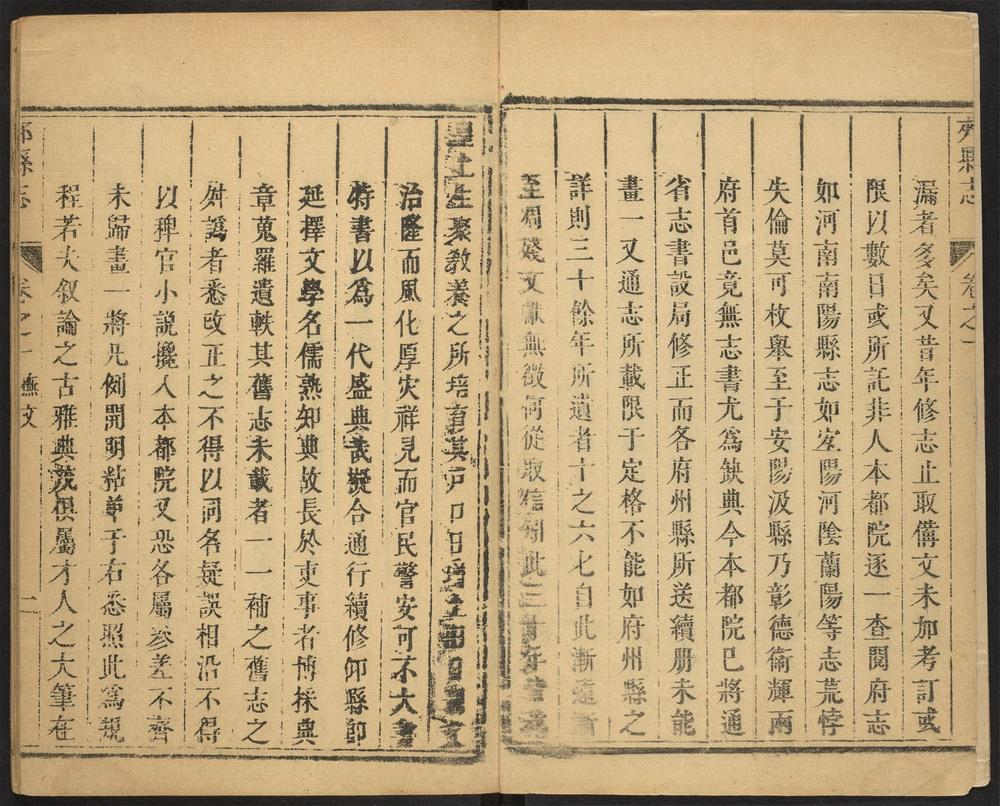 縣志
卷之一
漏者多矣又昔年修志止取備文未加考訂或
限以數日或所託非人本都院逐一查閱府志
如河南南陽縣志如宜陽河陰蘭陽等志荒悖
失倫莫可枚舉至于安陽汲縣乃彰德衛輝兩
府首邑竟無志書尤為缺典今本都院已將通
省志書設局修正而各府州縣所送續册未能
畫一又通志所載限于定格不能如府州縣之
詳則三十餘年所遺者十之六七自此漸遠漸
至凋殘文獻無徵何從取 此三 年
生聚教養之所培育其戶口日增
治隆而風化厚灾祥見而官民警安可不大書
特書以為一代盛典哉擬合通行續修仰縣即
延擇文學名儒熟知典故長於吏事者博採典
章蒐羅遺軼其舊志未載者一一補之舊志之
舛譌者悉改正之不得以同名疑誤相沿不得
以稗官小説攙入本都院又恐各屬參差不齊
未歸畫一將凡例開明粘单于右悉照此為規
程若夫叙論之古雅典茂俱屬才人之大筆在
縣志
卷之一
檄文
二